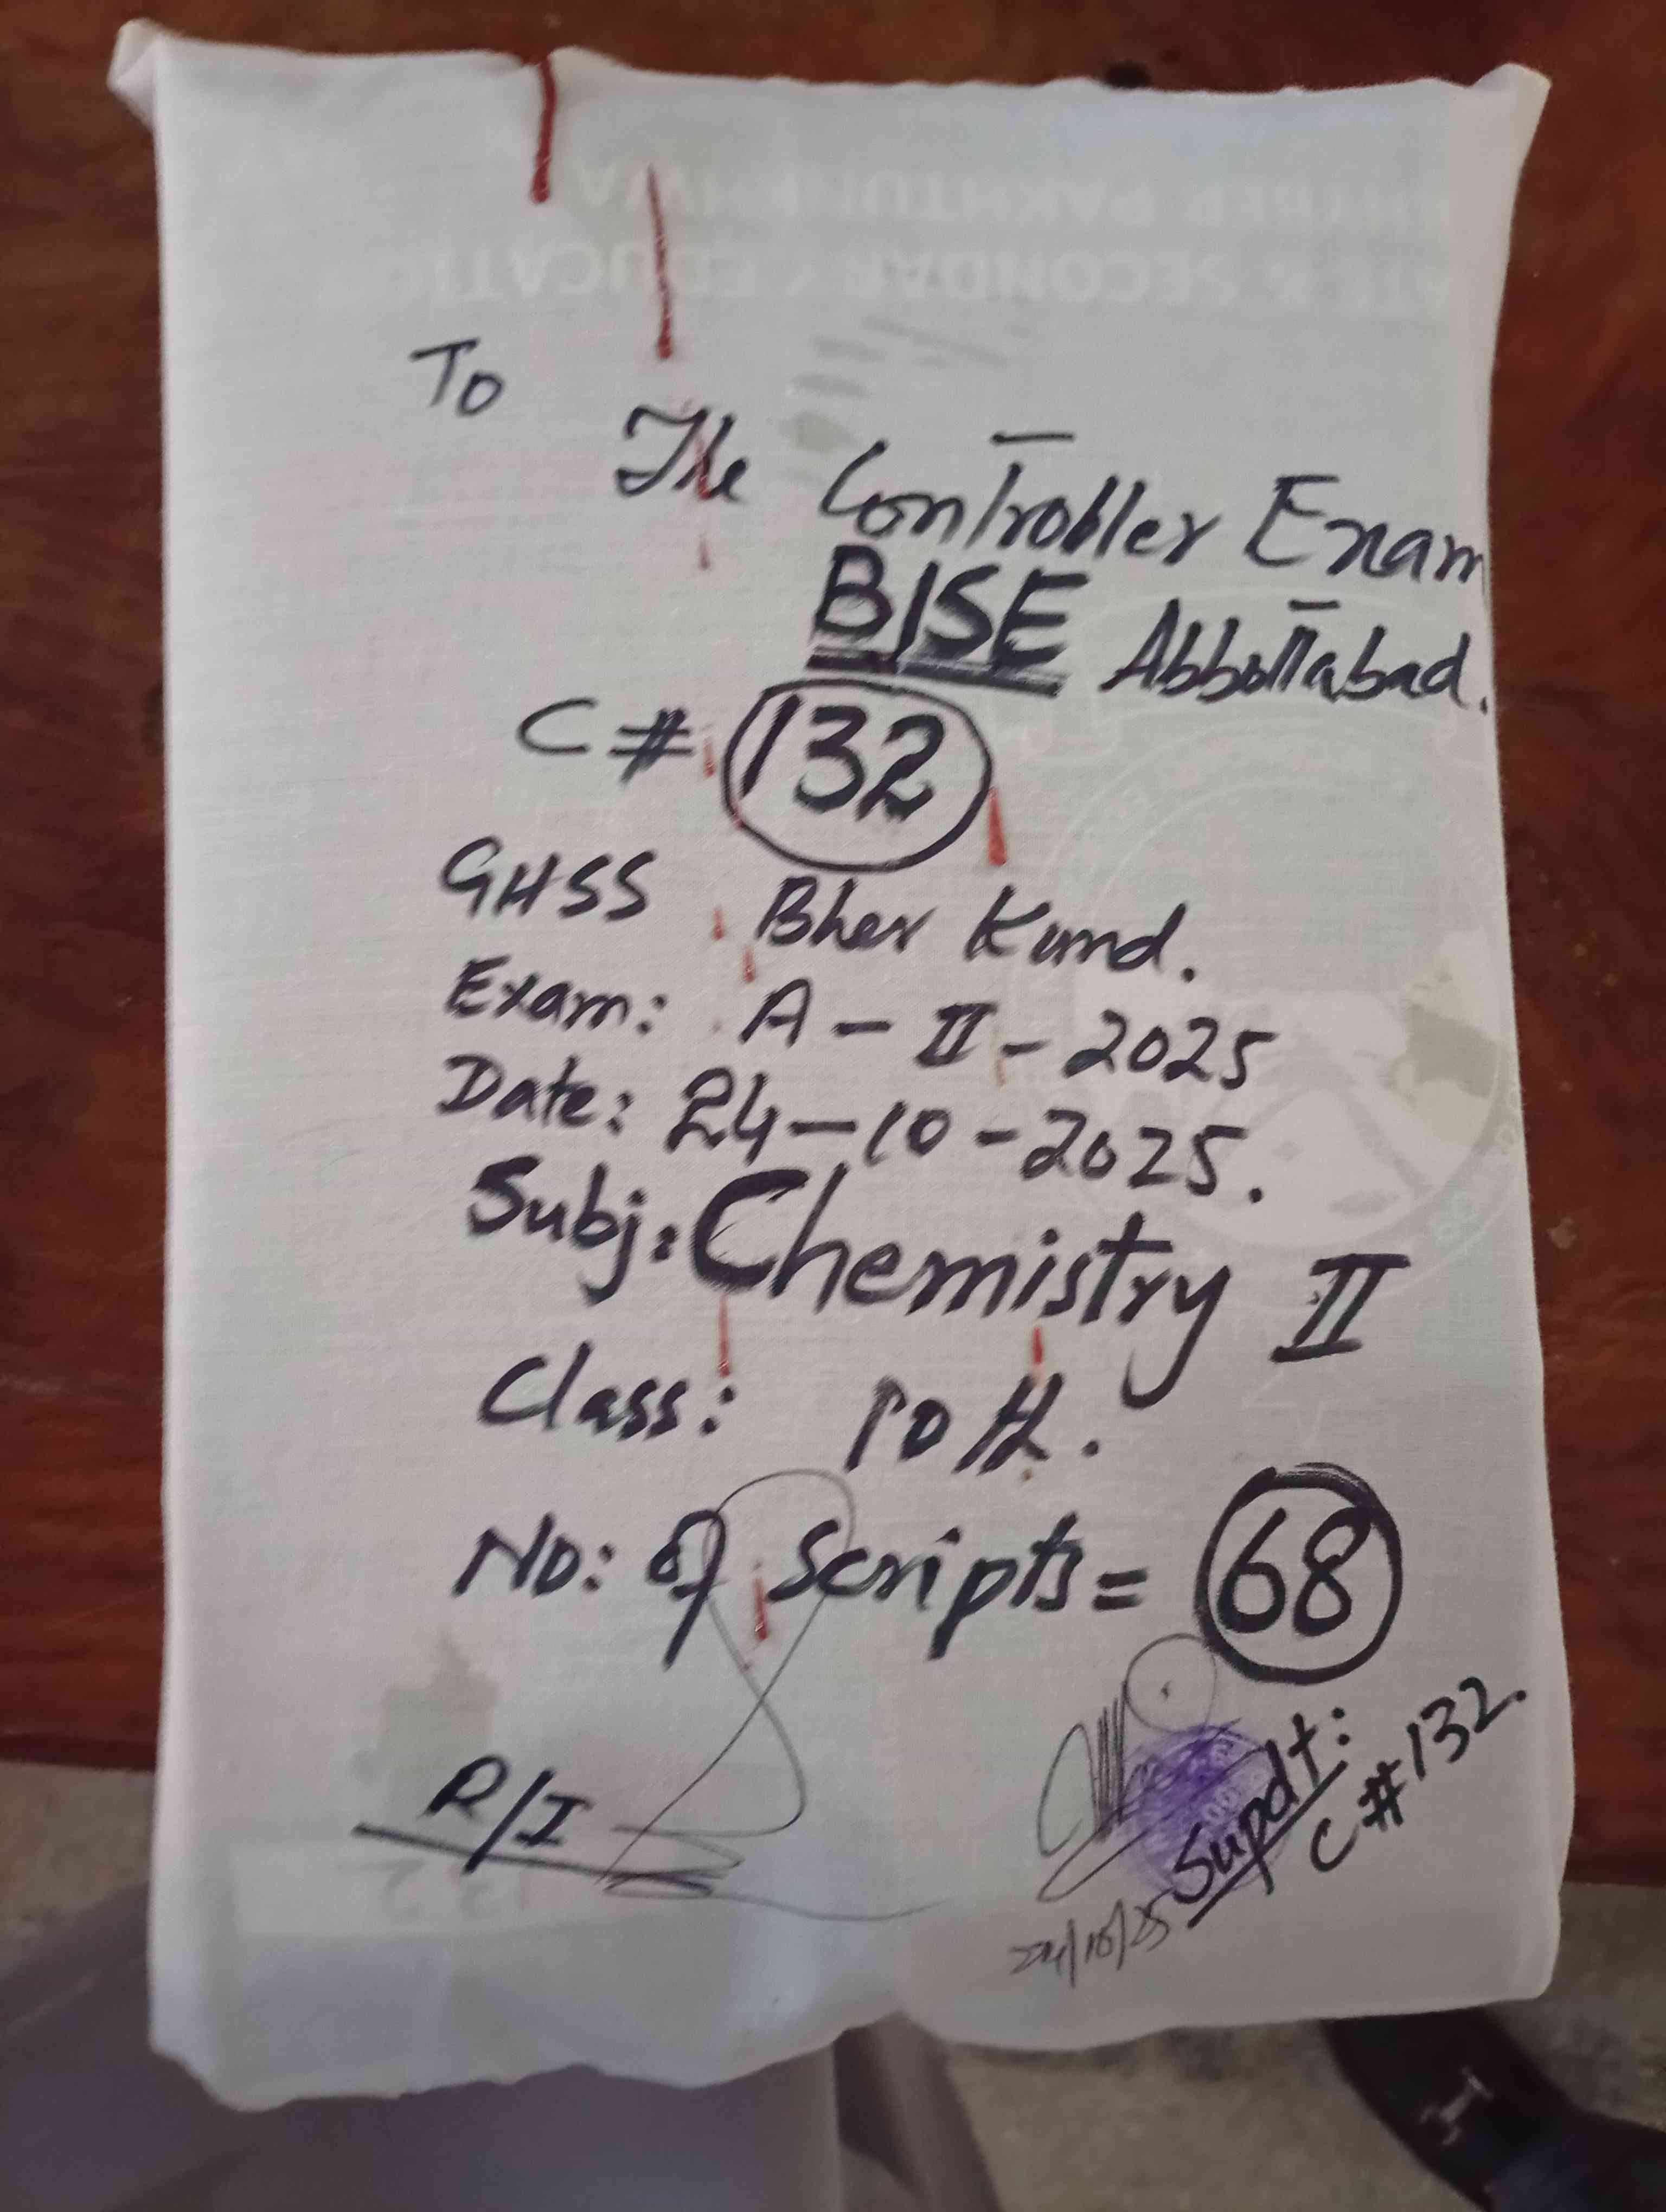 To
The Controller Exam
BISE Abbottabad.
C # 132
GHSS Bher Kund.
Exam: A - II - 2025
Date: 24-10-2025.
Subj: Chemistry II
Class: 10th.
No: of Scripts = 68
R/I
Supdt:
C # 132.
24/10/25
KHYBER PAKHTUNKHWA
& SECONDARY EDUCATION